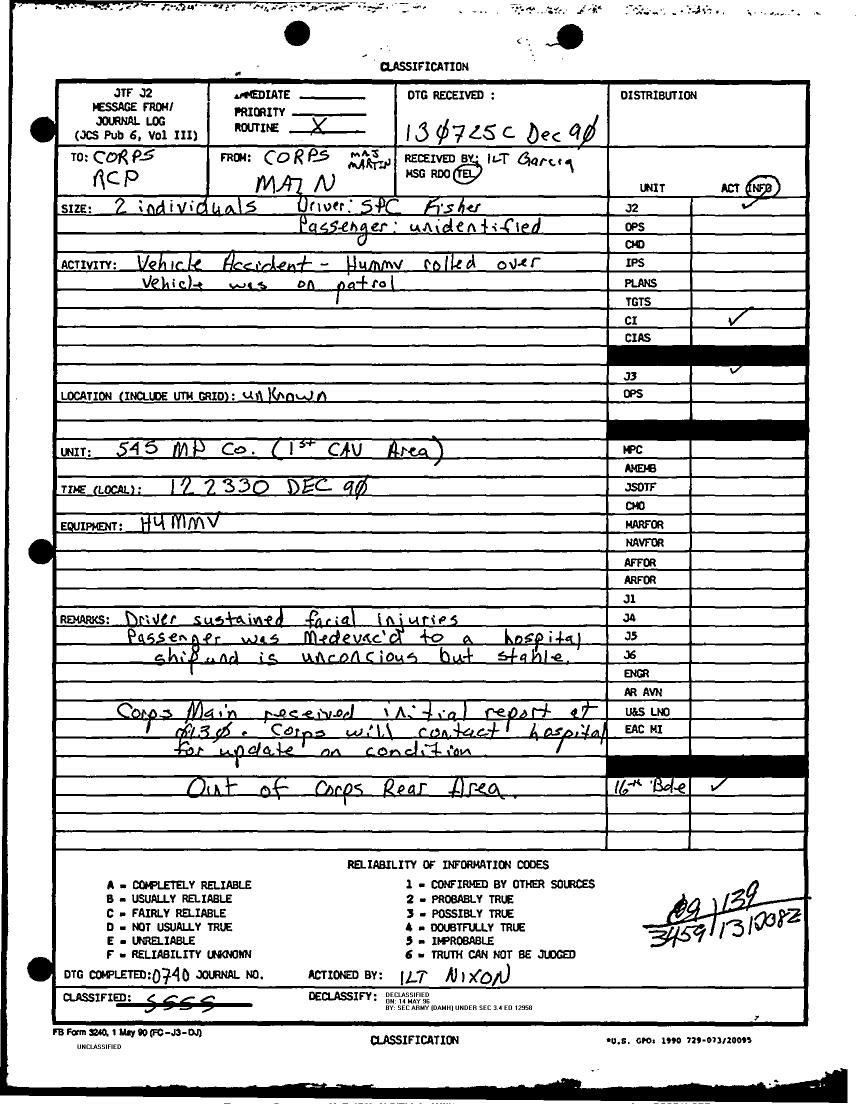 CLASSIFICATION
JTF J2
MESSAGE FROM/
JOURNAL LOG
(JCS Pub 6, Vol III)
IMMEDIATE
PRIORITY
ROUTINE X
DTG RECEIVED :
130725C Dec 90
DISTRIBUTION
TO: CORPS
RCP
FROM: CORPS MAJ MARTIN
MAIN
RECEIVED BY: 1LT Garcia
MSG RDO TEL
UNIT ACT INFO
SIZE: 2 individuals Driver: SPC Fisher
Passenger: unidentified
ACTIVITY: Vehicle Accident - Hummv rolled over
Vehicle was on patrol
LOCATION (INCLUDE UTM GRID): unknown
UNIT: 545 MP Co. (1st CAV Area)
TIME (LOCAL): 122330 DEC 90
EQUIPMENT: HUMMV
REMARKS: Driver sustained facial injuries
Passenger was Medevac'd to a hospital
ship and is unconcious but stable.
Corps Main received initial report at
0130. Corps will contact hospital
for update on condition
Out of Corps Rear Area.
J2 ✓
OPS
CMD
IPS
PLANS
TGTS
CI ✓
CIAS
J3 ✓
OPS
MPC
AMEMB
JSOTF
CMO
MARFOR
NAVFOR
AFFOR
ARFOR
J1
J4
J5
J6
ENGR
AR AVN
U&S LNO
EAC MI
16th Bde ✓
RELIABILITY OF INFORMATION CODES
A = COMPLETELY RELIABLE
B = USUALLY RELIABLE
C = FAIRLY RELIABLE
D = NOT USUALLY TRUE
E = UNRELIABLE
F = RELIABILITY UNKNOWN
1 = CONFIRMED BY OTHER SOURCES
2 = PROBABLY TRUE
3 = POSSIBLY TRUE
4 = DOUBTFULLY TRUE
5 = IMPROBABLE
6 = TRUTH CAN NOT BE JUDGED
139
3459
DTG COMPLETED: 0740 JOURNAL NO.
ACTIONED BY: 1LT NIXON
CLASSIFIED:
DECLASSIFY:
DECLASSIFIED
ON: 14 MAY 96
BY: SEC ARMY (DAMH) UNDER SEC 3.4 EO 12958
FB Form 3240, 1 May 90 (FC-J3-DJ)
UNCLASSIFIED
CLASSIFICATION
*U.S. GPO: 1990 729-073/20095